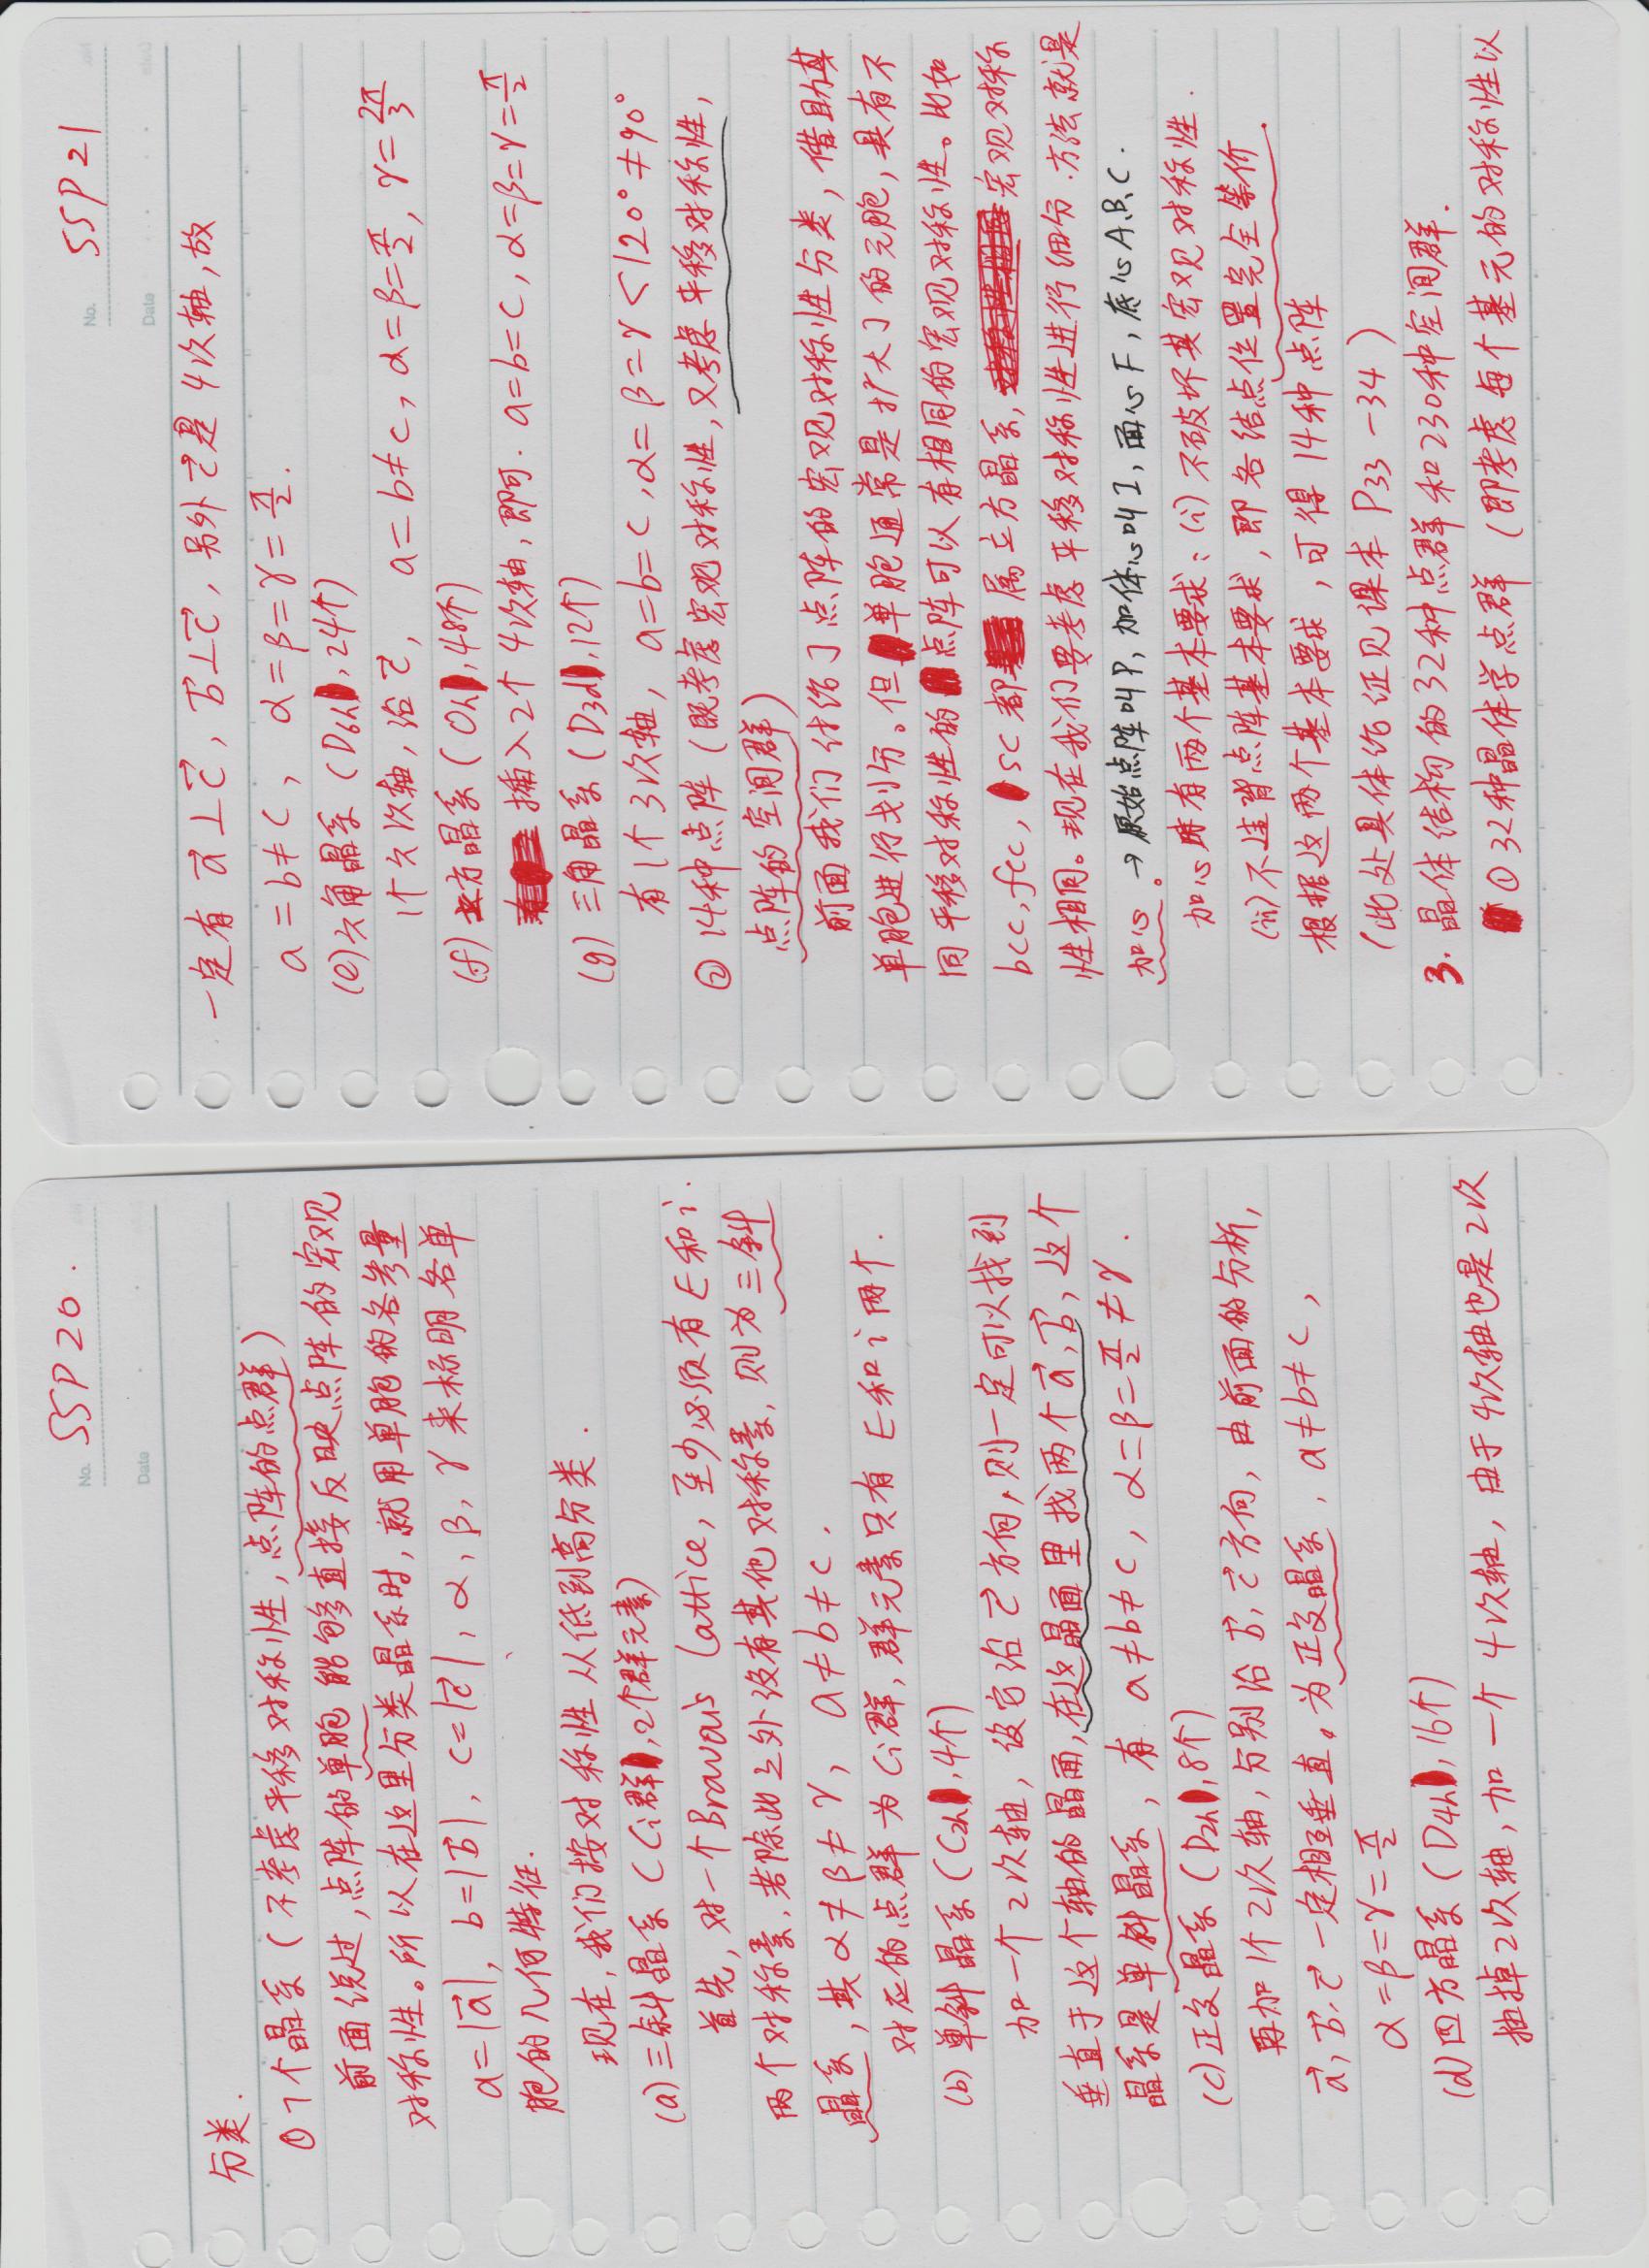 No. SSP 20.
Date
分类.
① 7个晶系 (不考虑平移对称性, 点阵的点群)
前面说过, 点阵的单胞能够直接反映点阵的宏观
对称性。所以在这里分类晶系时, 就用单胞的各参量
a=|a⃗|, b=|b⃗|, c=|c⃗|, α, β, γ 来标明各单
胞的几何特征.
现在, 我们按对称性从低到高分类.
(a) 三斜晶系 (Ci群, 2个群元素)
首先, 对一个Bravais Lattice, 至少必须有 E 和 i.
两个对称素, 若除此之外没有其他对称素, 则为三斜
晶系, 其 α≠β≠γ, a≠b≠c.
对应的点群为Ci群, 群元素只有 E 和 i 两个.
(b) 单斜晶系 (C2h, 4个)
加一个2次轴, 设它沿 c⃗ 方向, 则一定可以找到
垂直于这个轴的晶面, 在这晶面里找两个 a⃗, b⃗, 这个
晶系是单斜晶系, 有 a≠b≠c, α=β=π/2≠γ.
(c) 正交晶系 (D2h, 8个)
再加1个2次轴, 分别沿 b⃗, c⃗ 方向, 由前面的分析,
a⃗, b⃗, c⃗ 一定相互垂直。为正交晶系, a≠b≠c,
α=β=γ=π/2
(d) 四方晶系 (D4h, 16个)
抽掉2次轴, 加一个4次轴, 由于4次轴也是2次
No. SSP 21
Date
一定有 a⃗⊥c⃗, b⃗⊥c⃗, 另外 c⃗ 是4次轴, 故
a=b≠c, α=β=γ=π/2.
(e) 六角晶系 (D6h, 24个)
1个六次轴, 沿 c⃗, a=b≠c, α=β=π/2, γ=2π/3
(f) 立方晶系 (Oh, 48个)
插入2个4次轴, 即可. a=b=c, α=β=γ=π/2
(g) 三角晶系 (D3d, 12个)
有1个3次轴, a=b=c, α=β=γ<120°≠90°
② 14种点阵 (既考虑宏观对称性, 又考虑平移对称性,
点阵的空间群)
前面我们讨论了点阵的宏观对称性分类, 借助其
单胞进行划分。但单胞通常是扩大了的元胞, 具有不
同平移对称性的点阵可以有相同的宏观对称性。比如
bcc, fcc, sc都属立方晶系, 宏观对称
性相同。现在我们要考虑平移对称性进行细分. 方法就是
加心。→ 原始点阵叫P, 加体心叫I, 面心F, 底心A、B、C.
加心时有两个基本要求: (i) 不破坏其宏观对称性.
(ii) 不违背点阵基本要求, 即各结点位置完全等价.
根据这两个基本要求, 可得14种点阵
(此处具体论证见课本 P33-34)
3. 晶体结构的32种点群和230种空间群.
① 32种晶体学点群 (即考虑每个基元的对称性以